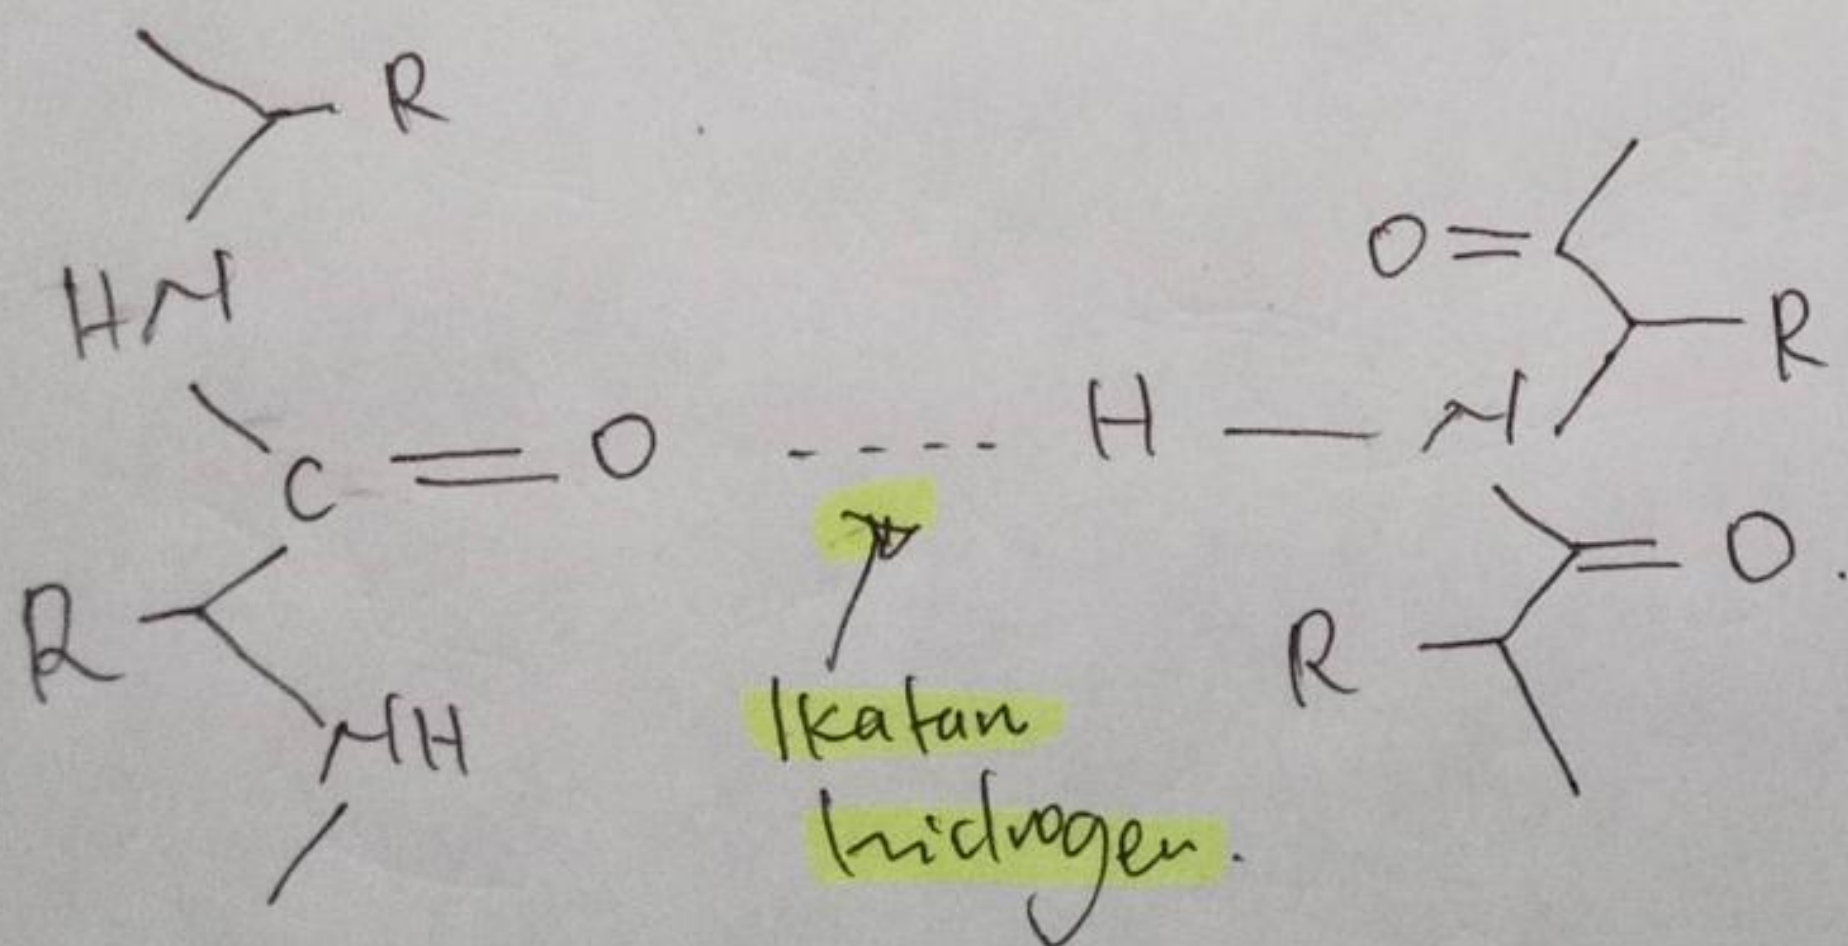 R
HN
C
O
R
NH
H
N
O
R
O
R
Ikatan
hidrogen.